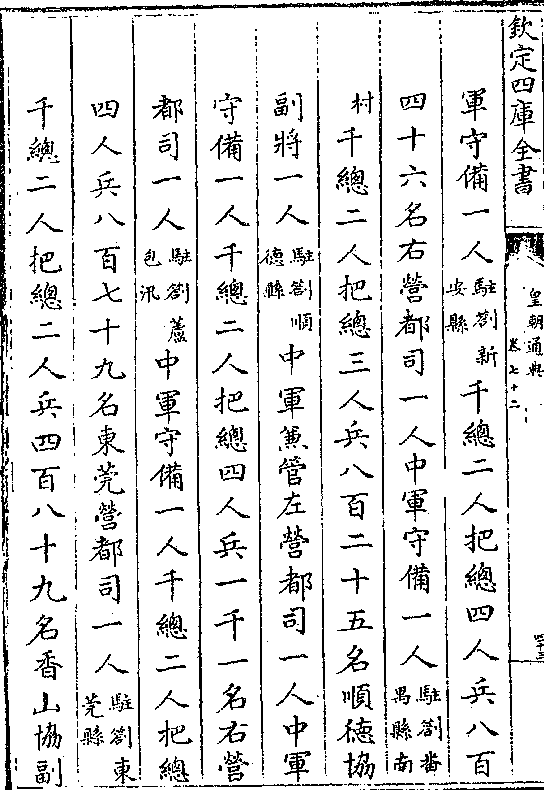 欽定四庫全書
皇朝通典
卷七十二
四十三
軍守備一人駐劄新安縣千總二人把總四人兵八百
四十六名右營都司一人中軍守備一人駐劄番禺縣南
村千總二人把總三人兵八百二十五名順德協
副將一人駐劄順德縣中軍兼管左營都司一人中軍
守備一人千總二人把總四人兵一千一名右營
都司一人駐劄蘆包汛中軍守備一人千總二人把總
四人兵八百七十九名東莞營都司一人駐劄東莞縣
千總二人把總二人兵四百八十九名香山協副